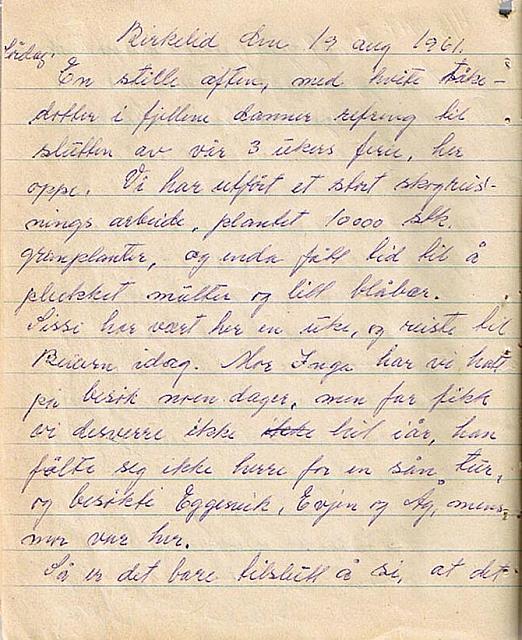 Birkelid den 19 aug 1961.
Lørdag.
En stille aften, med hvite tåke-
dotter i fjellene danner refreng til
slutten av vår 3 ukers ferie, her
oppe. Vi har utført et stort skogreis-
nings arbeide, plantet 10000 stk.
granplanter, og enda fått tid til å
plukket mülter og litt blåbær.
Sissi har vært her en uke, og reiste til
Beiarn idag. Mor Inga har vi hatt
på besøk noen dager, men far fikk
vi desverre ikke hit iår, han
følte seg ikke herre for en sån tur,
og besøkte Eggesvik, Evjen og Åg, mens
mor var her.
Så er det bare tilslutt å si, at det